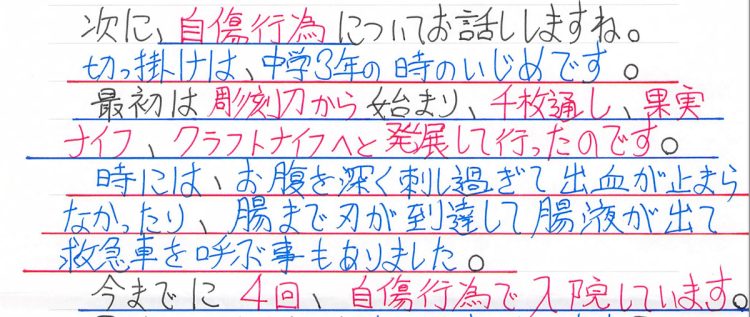 次に、自傷行為についてお話ししますね。
切っ掛けは、中学3年の時のいじめです。
最初は彫刻刀から始まり、千枚通し、果実
ナイフ、クラフトナイフへと発展して行ったのです。
時には、お腹を深く刺し過ぎて出血が止まら
なかったり、腸まで刃が到達して腸液が出て
救急車を呼ぶ事もありました。
今までに4回、自傷行為で入院しています。